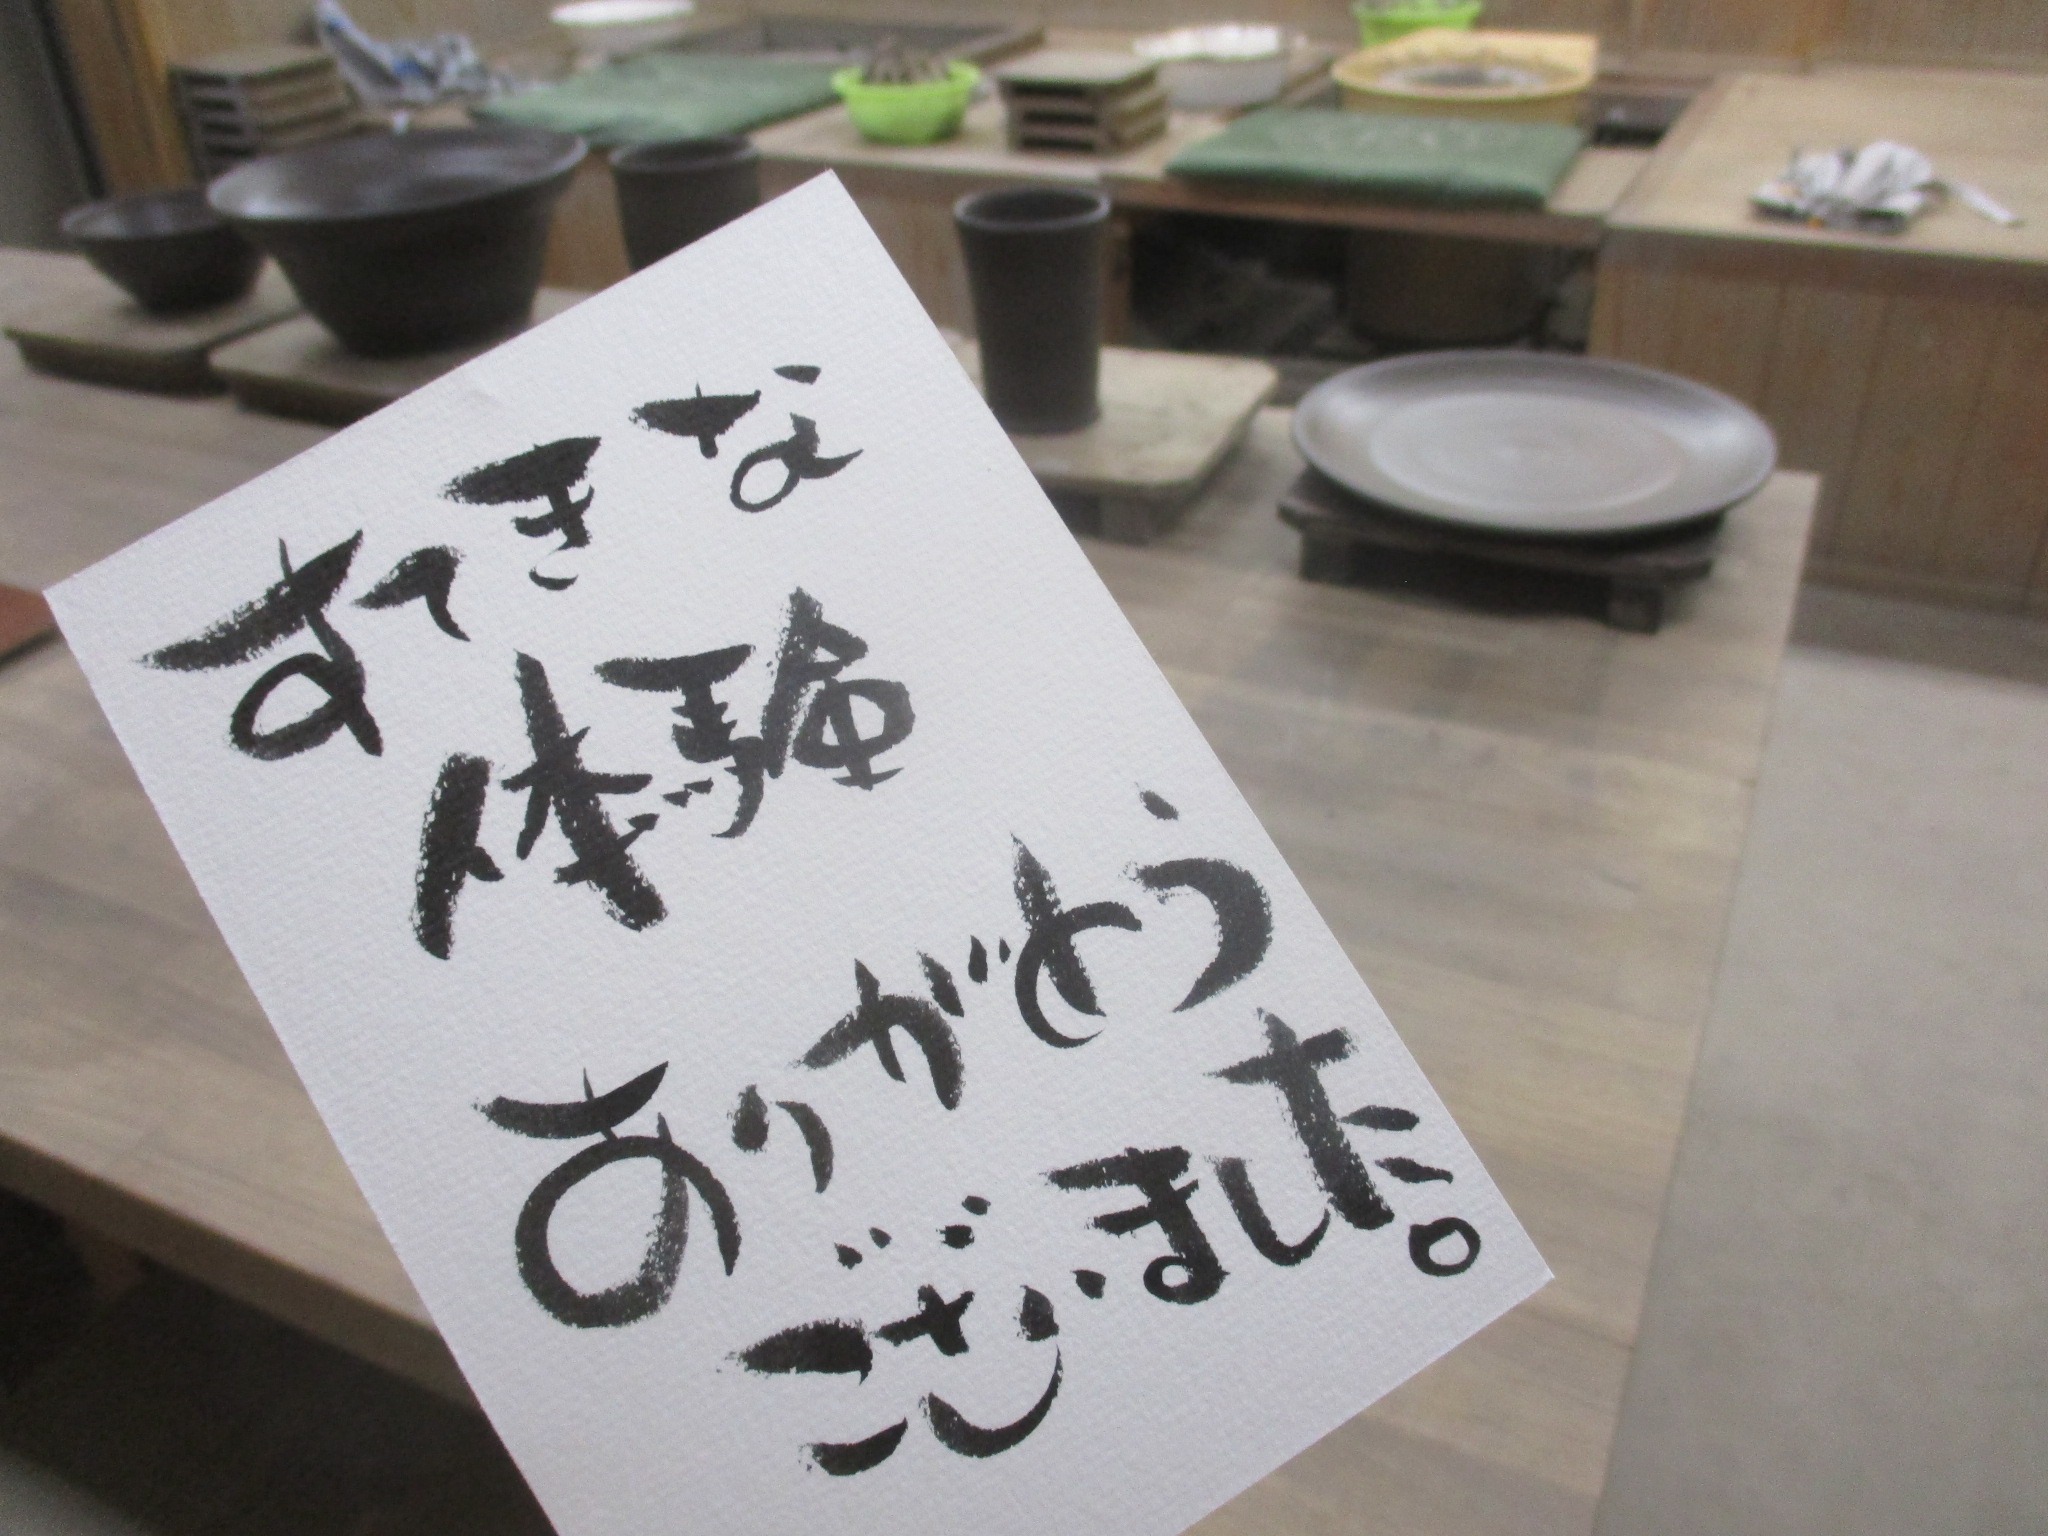 すてきな
体験
ありがとう
ございました。